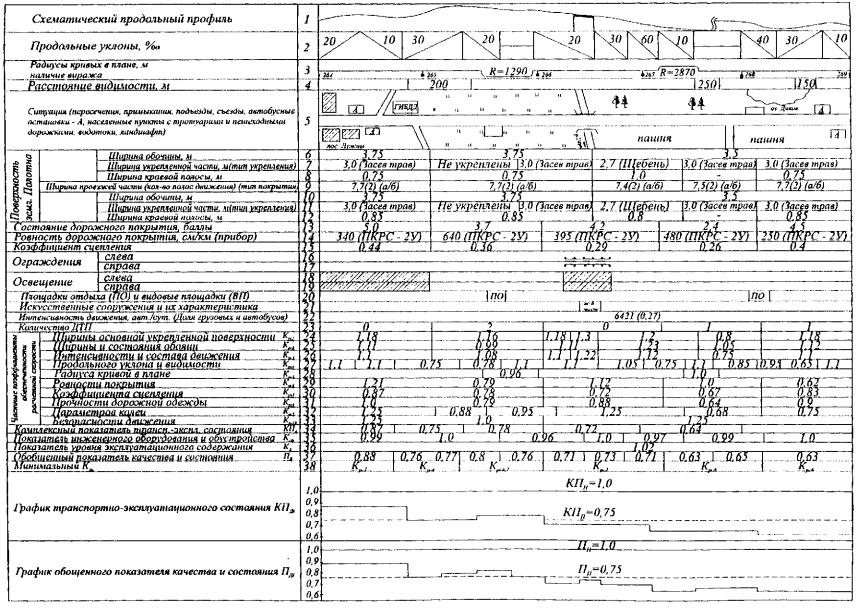 Схематический продольный профиль 1
Продольные уклоны, ‰ 2 20 10 30 20 20 30 60 10 40 30 10
Радиусы кривых в плане, м
наличие виража 3 R=1290 R=2870
264 265 266 267 268 269
Расстояние видимости, м 4 200 250 150
Ситуация (пересечения, примыкания, подъезды, съезды, автобусные
остановки - А, населенные пункты с тротуарами и пешеходными
дорожками, водотоки, ландшафт) 5
А ГИБДД А
пос. пашня пашня
Поверхность зем. полотна
Ширина обочины, м 6 3,75 3,75 3,5
Ширина укрепленной части, м(тип укрепления) 7 3,0 (Засев трав) Не укреплены 3,0 (Засев трав) 2,7 (Щебень) 3,0 (Засев трав) 3,0 (Засев трав)
Ширина краевой полосы, м 8 0,75 0,75 1,0 - 0,75
Ширина проезжей части (кол-во полос движения) (тип покрытия) 9 7,7(2) (а/б) 7,7(2) (а/б) 7,4(2) (а/б) 7,5(2) (а/б) 7,7(2) (а/б)
Ширина обочины, м 10 3,75 3,75 3,5
Ширина укрепленной части, м(тип укрепления) 11 3,0 (Засев трав) Не укреплены 3,0 (Засев трав) 2,7 (Щебень) 3,0 (Засев трав) 3,0 (Засев трав)
Ширина краевой полосы, м 12 0,85 0,85 0,8 - 0,85
Состояние дорожного покрытия, баллы 13 5,0 3,7 4,2 2,4 4,5
Ровность дорожного покрытия, см/км (прибор) 14 340 (ПКРС - 2У) 640 (ПКРС - 2У) 395 (ПКРС - 2У) 480 (ПКРС - 2У) 250 (ПКРС - 2У)
Коэффициент сцепления 15 0,44 0,36 0,29 0,26 0,4
Ограждения слева 16
справа 17
Освещение слева 18
справа 19
Площадки отдыха (ПО) и видовые площадки (ВП) 20 ПО ПО
Искусственные сооружения и их характеристика 21
Интенсивность движения, авт./сут. (Доля грузовых и автобусов) 22 6421 (0,27)
Количество ДТП 23 0 2 0 1 1
Частные коэффициенты обеспеченности расчетной скорости
Ширины основной укрепленной поверхности 24 1,18 1,6 1,18 1,3 1,2 0,8 1,18
Ширины и состояния обочин 25 1,0 0,99 1,1 1,23 1,05 1,2
Интенсивности и состава движения 26 1,1 1,08 1,1 1,22 1,12 0,75 1,12
Продольного уклона и видимости 27 1,1 1,1 0,75 0,78 1,1 1,1 1,05 0,75 1,1 0,85 0,95 0,65 1,1
Радиуса кривой в плане 28 0,96 1,0
Ровности покрытия 29 1,21 0,79 1,12 1,0 0,62
Коэффициента сцепления 30 0,87 0,78 0,72 0,67 0,83
Прочности дорожной одежды 31 1,0 0,79 0,88 0,64 0,9
Параметров колеи 32 1,25 0,88 0,95 1,25 0,68 0,75
Безопасности движения 33 1,25 1,0 1,25
Комплексный показатель трансп.-экспл. состояния 34 0,87 0,75 0,78 0,72 0,64
Показатель инженерного оборудования и обустройства 35 0,99 1,0 0,96 1,0 0,97 0,99 1,0
Показатель уровня эксплуатационного содержания 36 1,02
Обобщенный показатель качества и состояния 37 0,88 0,76 0,77 0,8 0,76 0,71 0,73 0,71 0,63 0,65 0,63
Минимальный К 38
График транспортно-эксплуатационного состояния КПд
1,0 0,9 0,8 0,7 0,6
КПн=1,0
КПп=0,75
График обощенного показателя качества и состояния Пд
1,0 0,9 0,8 0,7 0,6
Пн=1,0
Пп=0,75